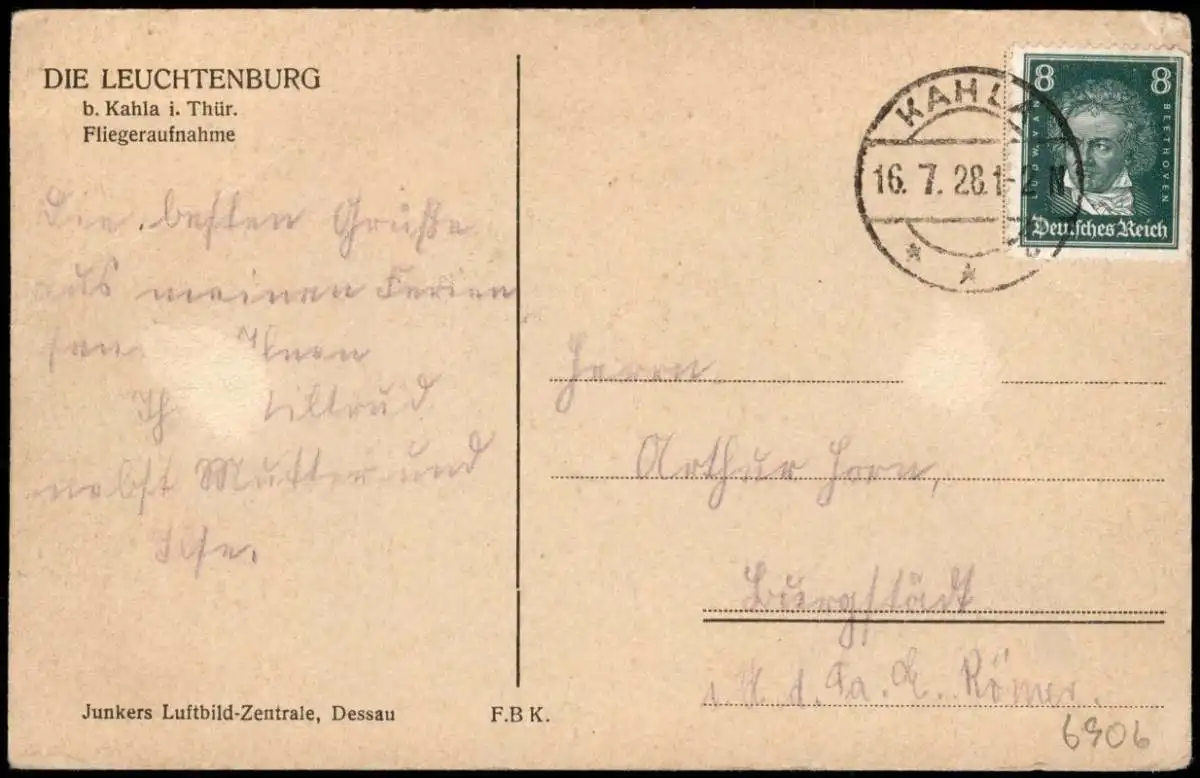 DIE LEUCHTENBURG
b. Kahla i. Thür.
Fliegeraufnahme
Die besten Grüße
aus meinen Ferien
Ihnen
nebst Mutter und
Ilse.
Junkers Luftbild-Zentrale, Dessau
F.B K.
KAHLA
16. 7. 28. 1-2 N
8 8
BEETHOVEN
Deutsches Reich
Herrn
Arthur Horn,
Burgstädt
i. d. Fa. Römer.
6906